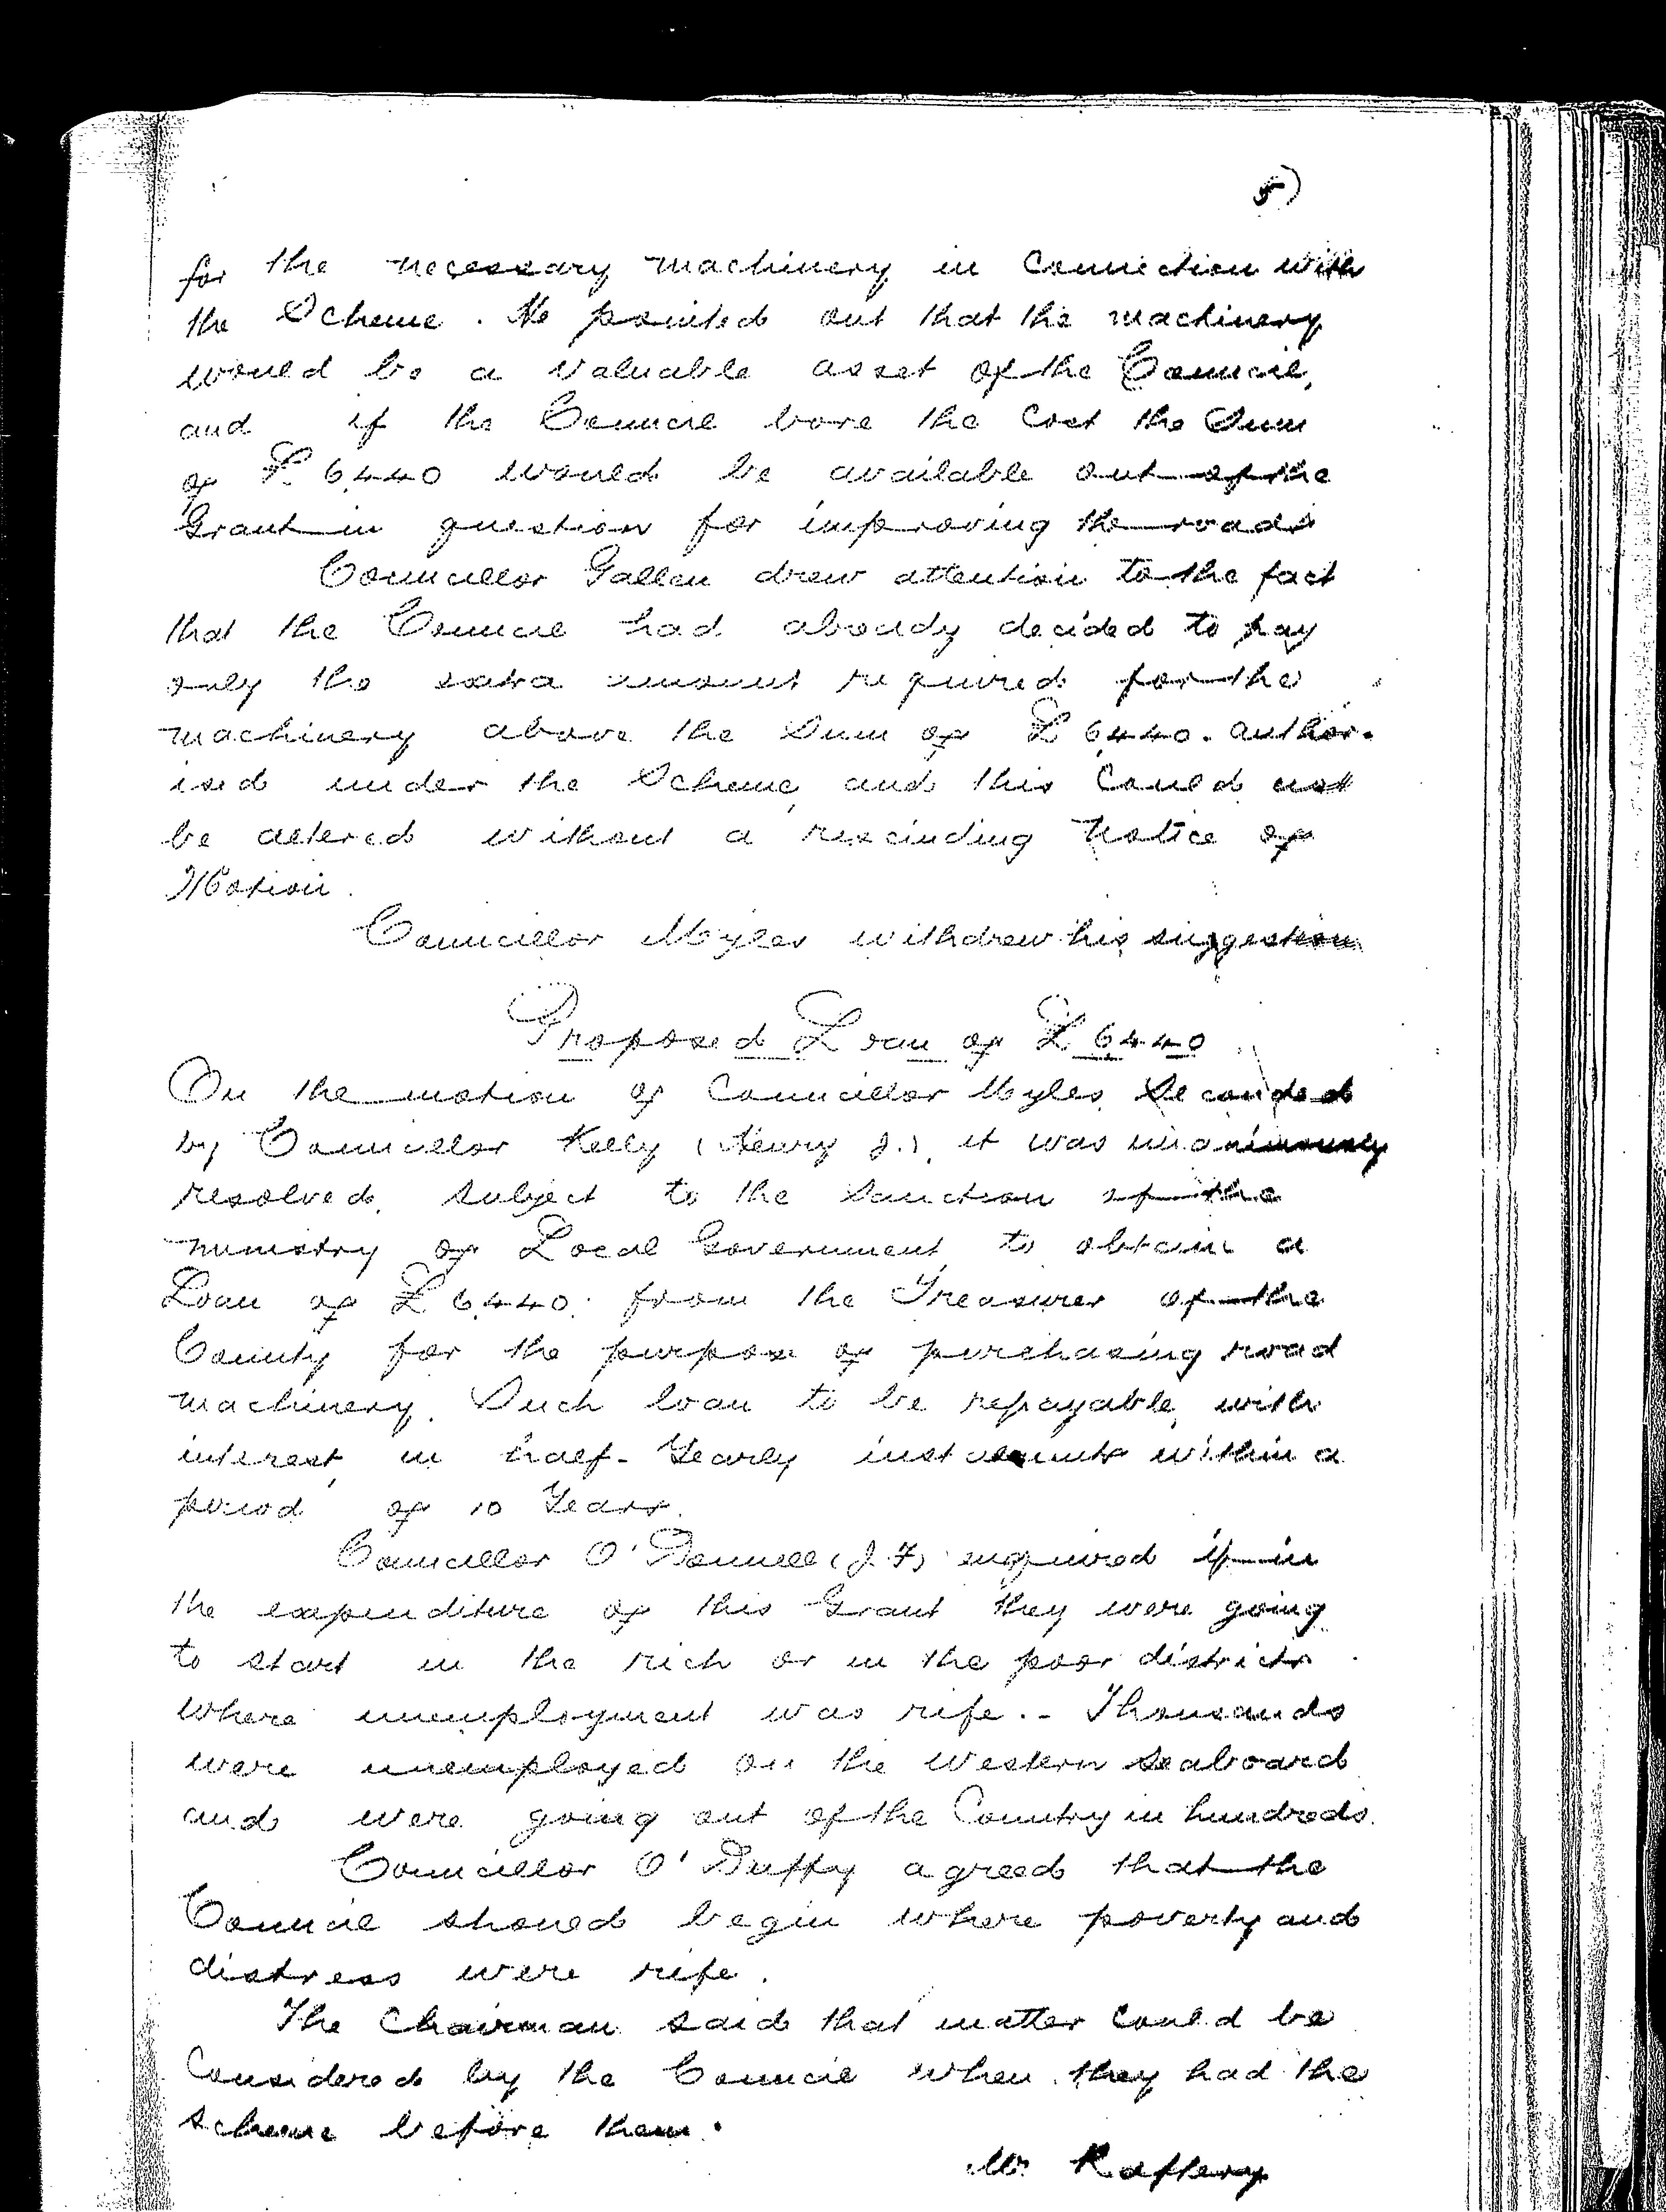 5)
for the necessary machinery in Connection with
the Scheme. He pointed out that the machinery
would be a valuable asset of the Council,
and if the Council bore the Cost the Sum
of £6440 would be available out of the
Grant in question for improving the roads
Councillor Gallen drew attention to the fact
that the Council had already decided to pay
only the extra amount required for the
machinery above the Sum of £6440. author-
ised under the Scheme, and this Could not
be altered without a rescinding Notice of
Motion.
Councillor Myles withdrew his suggestion
Proposed Loan of £6440.
On the motion of Councillor Myles, Seconded
by Councillor Kelly (Henry J.), it was unanimously
resolved, subject to the Sanction of the
ministry of Local Government, to obtain a
Loan of £6440. from the Treasurer of the
County for the purpose of purchasing road
machinery. Such loan to be repayable, with
interest, in half-Yearly instalments within a
period of 10 Years.
Councillor O'Donnell (J.F) enquired if in
the expenditure of this Grant they were going
to start in the rich or in the poor districts
where unemployment was rife.- Thousands
were unemployed on the Western Seaboard
and were going out of the Country in hundreds.
Councillor O'Duffy agreed that the
Council should begin where poverty and
distress were rife.
The Chairman said that matter Could be
Considered by the Council when they had the
scheme before them.
Mr. Raftery